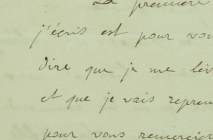 La première
j'écris est pour vous
dire que je me
et que je vais repren
pour vous remercier